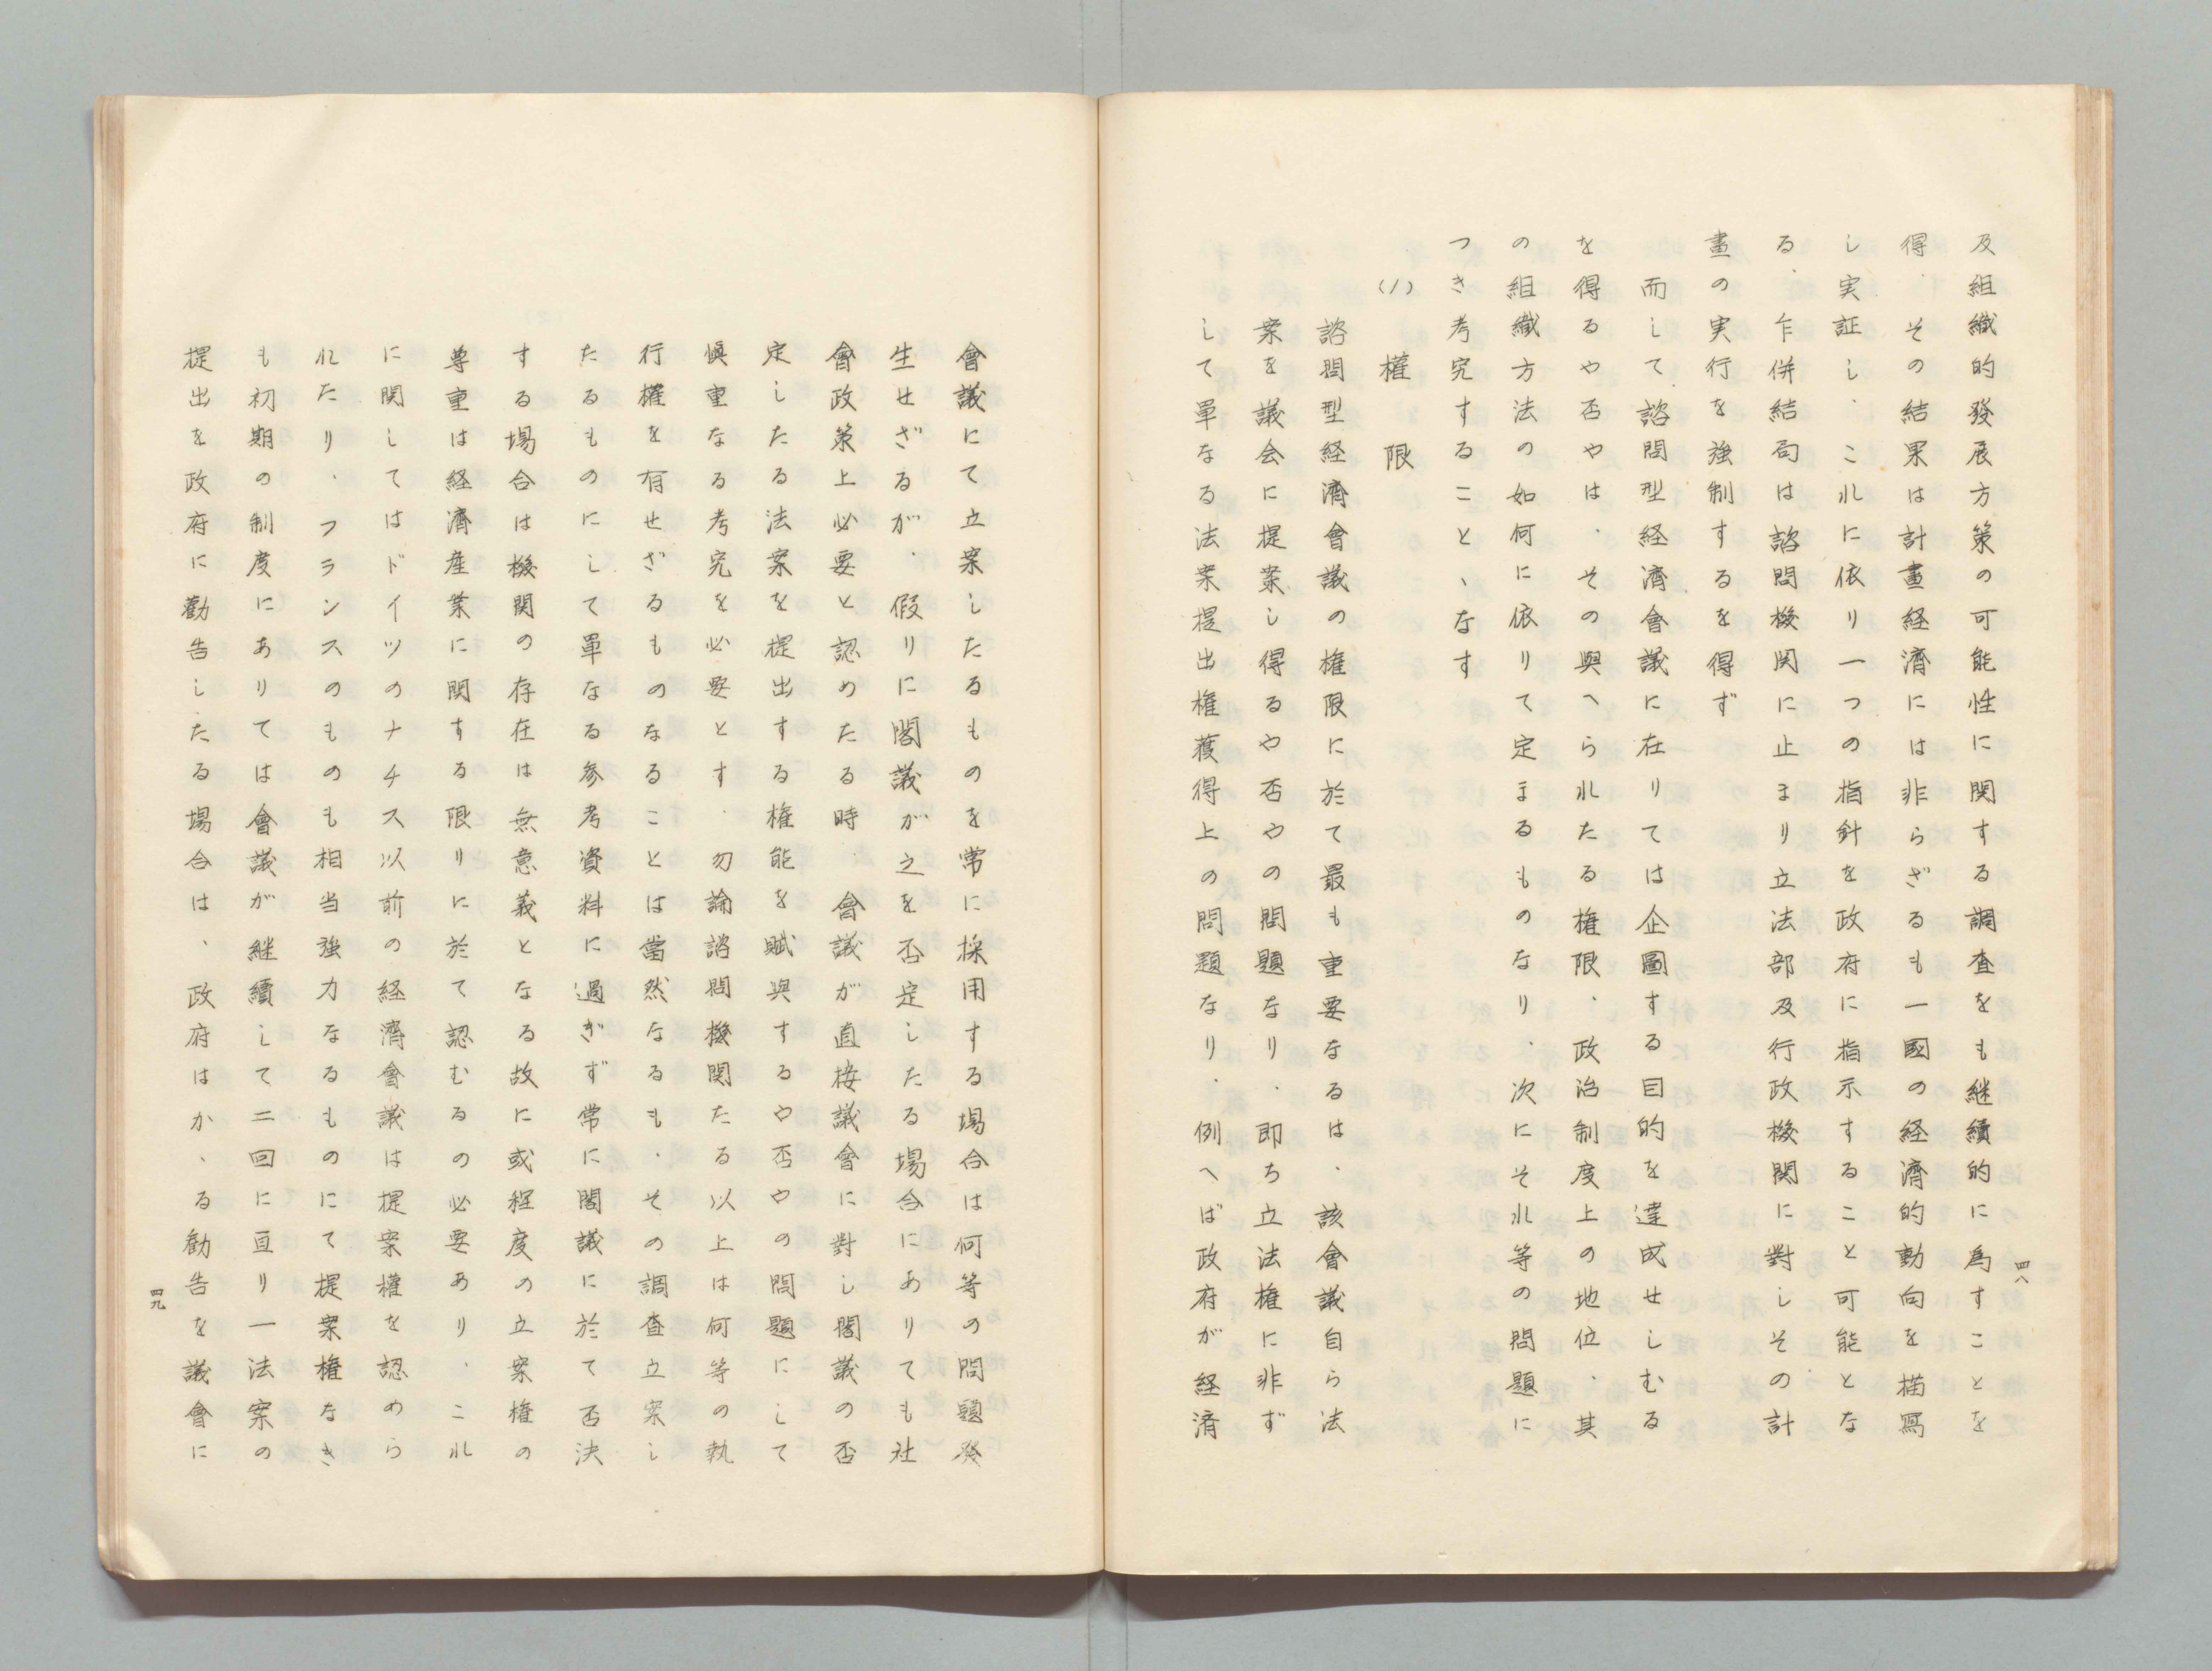 及組織的發展方策の可能性に関する調査をも継續的に爲すことを
得、その結果は計畫経濟には非らざるも一國の経濟的動向を描寫
し実証し、これに依り一つの指針を政府に指示すること可能とな
る、乍併結局は諮問機関に止まり立法部及行政機関に對しその計
畫の実行を強制するを得ず
而して諮問型経濟會議に在りては企圖する目的を達成せしむる
を得るや否やは、その與へられたる権限、政治制度上の地位、其
の組織方法の如何に依りて定まるものなり、次にそれ等の問題に
つき考究することゝなす
(1) 權限
諮問型経濟會議の権限に於て最も重要なるは、該會議自ら法
案を議会に提案し得るや否やの問題なり、即ち立法権に非ず
して單なる法案提出権獲得上の問題なり、例へば政府が経済
四八
會議にて立案したるものを常に採用する場合は何等の問題發
生せざるが、假りに閣議が之を否定したる場合にありても社
會政策上必要と認めたる時、會議が直接議會に對し閣議の否
定したる法案を提出する権能を賦與するや否やの問題にして
愼重なる考究を必要とす、勿論諮問機関たる以上は何等の執
行權を有せざるものなることは當然なるも、その調査立案し
たるものにして單なる参考資料に過ぎず常に閣議に於て否決
する場合は機関の存在は無意義となる故に或程度の立案権の
尊重は経濟産業に関する限りに於て認むるの必要あり、これ
に関してはドイツのナチス以前の経濟會議は提案權を認めら
れたり、フランスのものも相当強力なるものにて提案権なき
も初期の制度にありては會議が継續して二回に亘り一法案の
提出を政府に勸告したる場合は、政府はかゝる勧告を議會に
四九